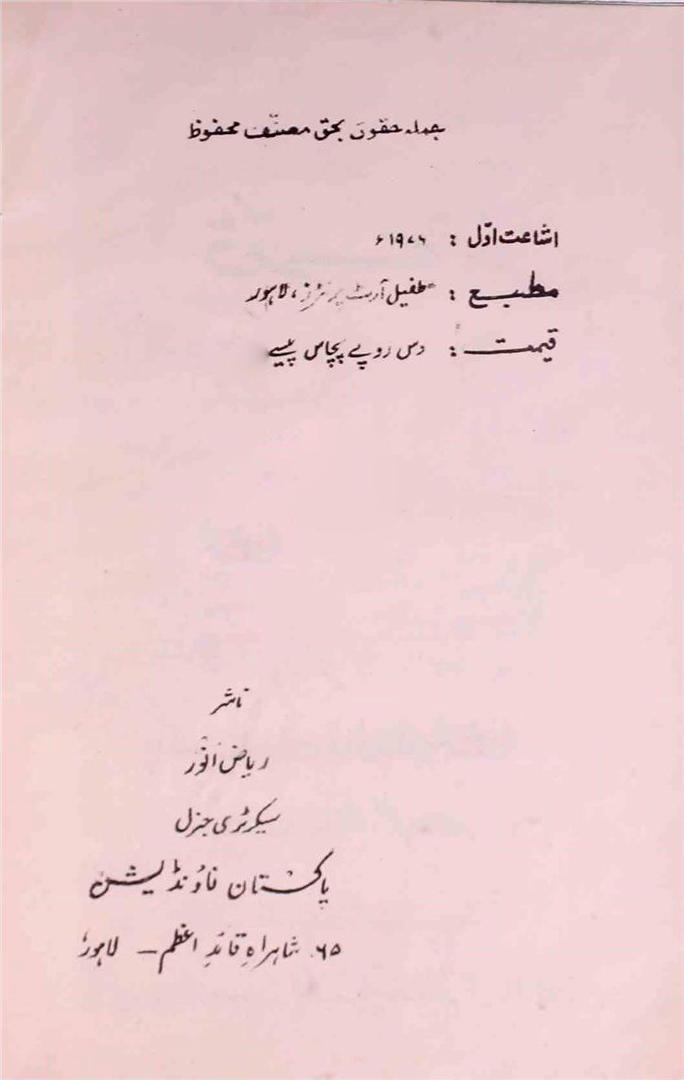 جملہ حقوق بحق مصنّف محفوظ
اشاعت اوّل : ۱۹۷۶ء
مطبع : طفیل آرٹ پرنٹرز، لاہور
قیمت : دس روپے پچاس پیسے
ناشر
ریاض انور
سیکرٹری جنرل
پاکستان فاؤنڈیشن
۶۵۔ شاہراہِ قائدِ اعظم – لاہور